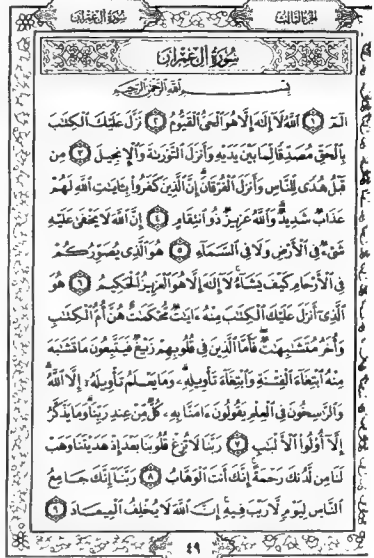 الجزء الثالث سورة آل عمران
سُورَةُ آلِ عِمْرَانَ
بِسْمِ اللَّهِ الرَّحْمَٰنِ الرَّحِيمِ
الٓمٓ ١ ٱللَّهُ لَآ إِلَٰهَ إِلَّا هُوَ ٱلْحَىُّ ٱلْقَيُّومُ ٢ نَزَّلَ عَلَيْكَ ٱلْكِتَٰبَ
بِٱلْحَقِّ مُصَدِّقًا لِّمَا بَيْنَ يَدَيْهِ وَأَنزَلَ ٱلتَّوْرَىٰةَ وَٱلْإِنجِيلَ ٣ مِن
قَبْلُ هُدًى لِّلنَّاسِ وَأَنزَلَ ٱلْفُرْقَانَ ۗ إِنَّ ٱلَّذِينَ كَفَرُوا۟ بِـَٔايَٰتِ ٱللَّهِ لَهُمْ
عَذَابٌ شَدِيدٌ ۗ وَٱللَّهُ عَزِيزٌ ذُو ٱنتِقَامٍ ٤ إِنَّ ٱللَّهَ لَا يَخْفَىٰ عَلَيْهِ
شَىْءٌ فِى ٱلْأَرْضِ وَلَا فِى ٱلسَّمَآءِ ٥ هُوَ ٱلَّذِى يُصَوِّرُكُمْ
فِى ٱلْأَرْحَامِ كَيْفَ يَشَآءُ ۚ لَآ إِلَٰهَ إِلَّا هُوَ ٱلْعَزِيزُ ٱلْحَكِيمُ ٦ هُوَ
ٱلَّذِىٓ أَنزَلَ عَلَيْكَ ٱلْكِتَٰبَ مِنْهُ ءَايَٰتٌ مُّحْكَمَٰتٌ هُنَّ أُمُّ ٱلْكِتَٰبِ
وَأُخَرُ مُتَشَٰبِهَٰتٌ ۖ فَأَمَّا ٱلَّذِينَ فِى قُلُوبِهِمْ زَيْغٌ فَيَتَّبِعُونَ مَا تَشَٰبَهَ
مِنْهُ ٱبْتِغَآءَ ٱلْفِتْنَةِ وَٱبْتِغَآءَ تَأْوِيلِهِۦ ۗ وَمَا يَعْلَمُ تَأْوِيلَهُۥٓ إِلَّا ٱللَّهُ ۗ
وَٱلرَّٰسِخُونَ فِى ٱلْعِلْمِ يَقُولُونَ ءَامَنَّا بِهِۦ كُلٌّ مِّنْ عِندِ رَبِّنَا ۗ وَمَا يَذَّكَّرُ
إِلَّآ أُو۟لُوا۟ ٱلْأَلْبَٰبِ ٧ رَبَّنَا لَا تُزِغْ قُلُوبَنَا بَعْدَ إِذْ هَدَيْتَنَا وَهَبْ
لَنَا مِن لَّدُنكَ رَحْمَةً ۚ إِنَّكَ أَنتَ ٱلْوَهَّابُ ٨ رَبَّنَآ إِنَّكَ جَامِعُ
ٱلنَّاسِ لِيَوْمٍ لَّا رَيْبَ فِيهِ ۚ إِنَّ ٱللَّهَ لَا يُخْلِفُ ٱلْمِيعَادَ ٩
٤٩